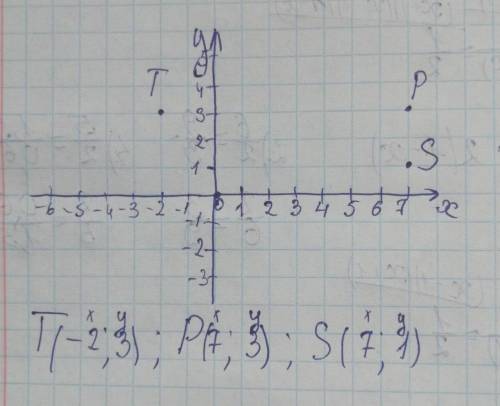 y
5
4
T P
3
2
1 S
-6 -5 -4 -3 -2 -1 0 1 2 3 4 5 6 7 x
-1
-2
-3
x y x y x y
T(-2; 3); P(7; 3); S(7; 1)